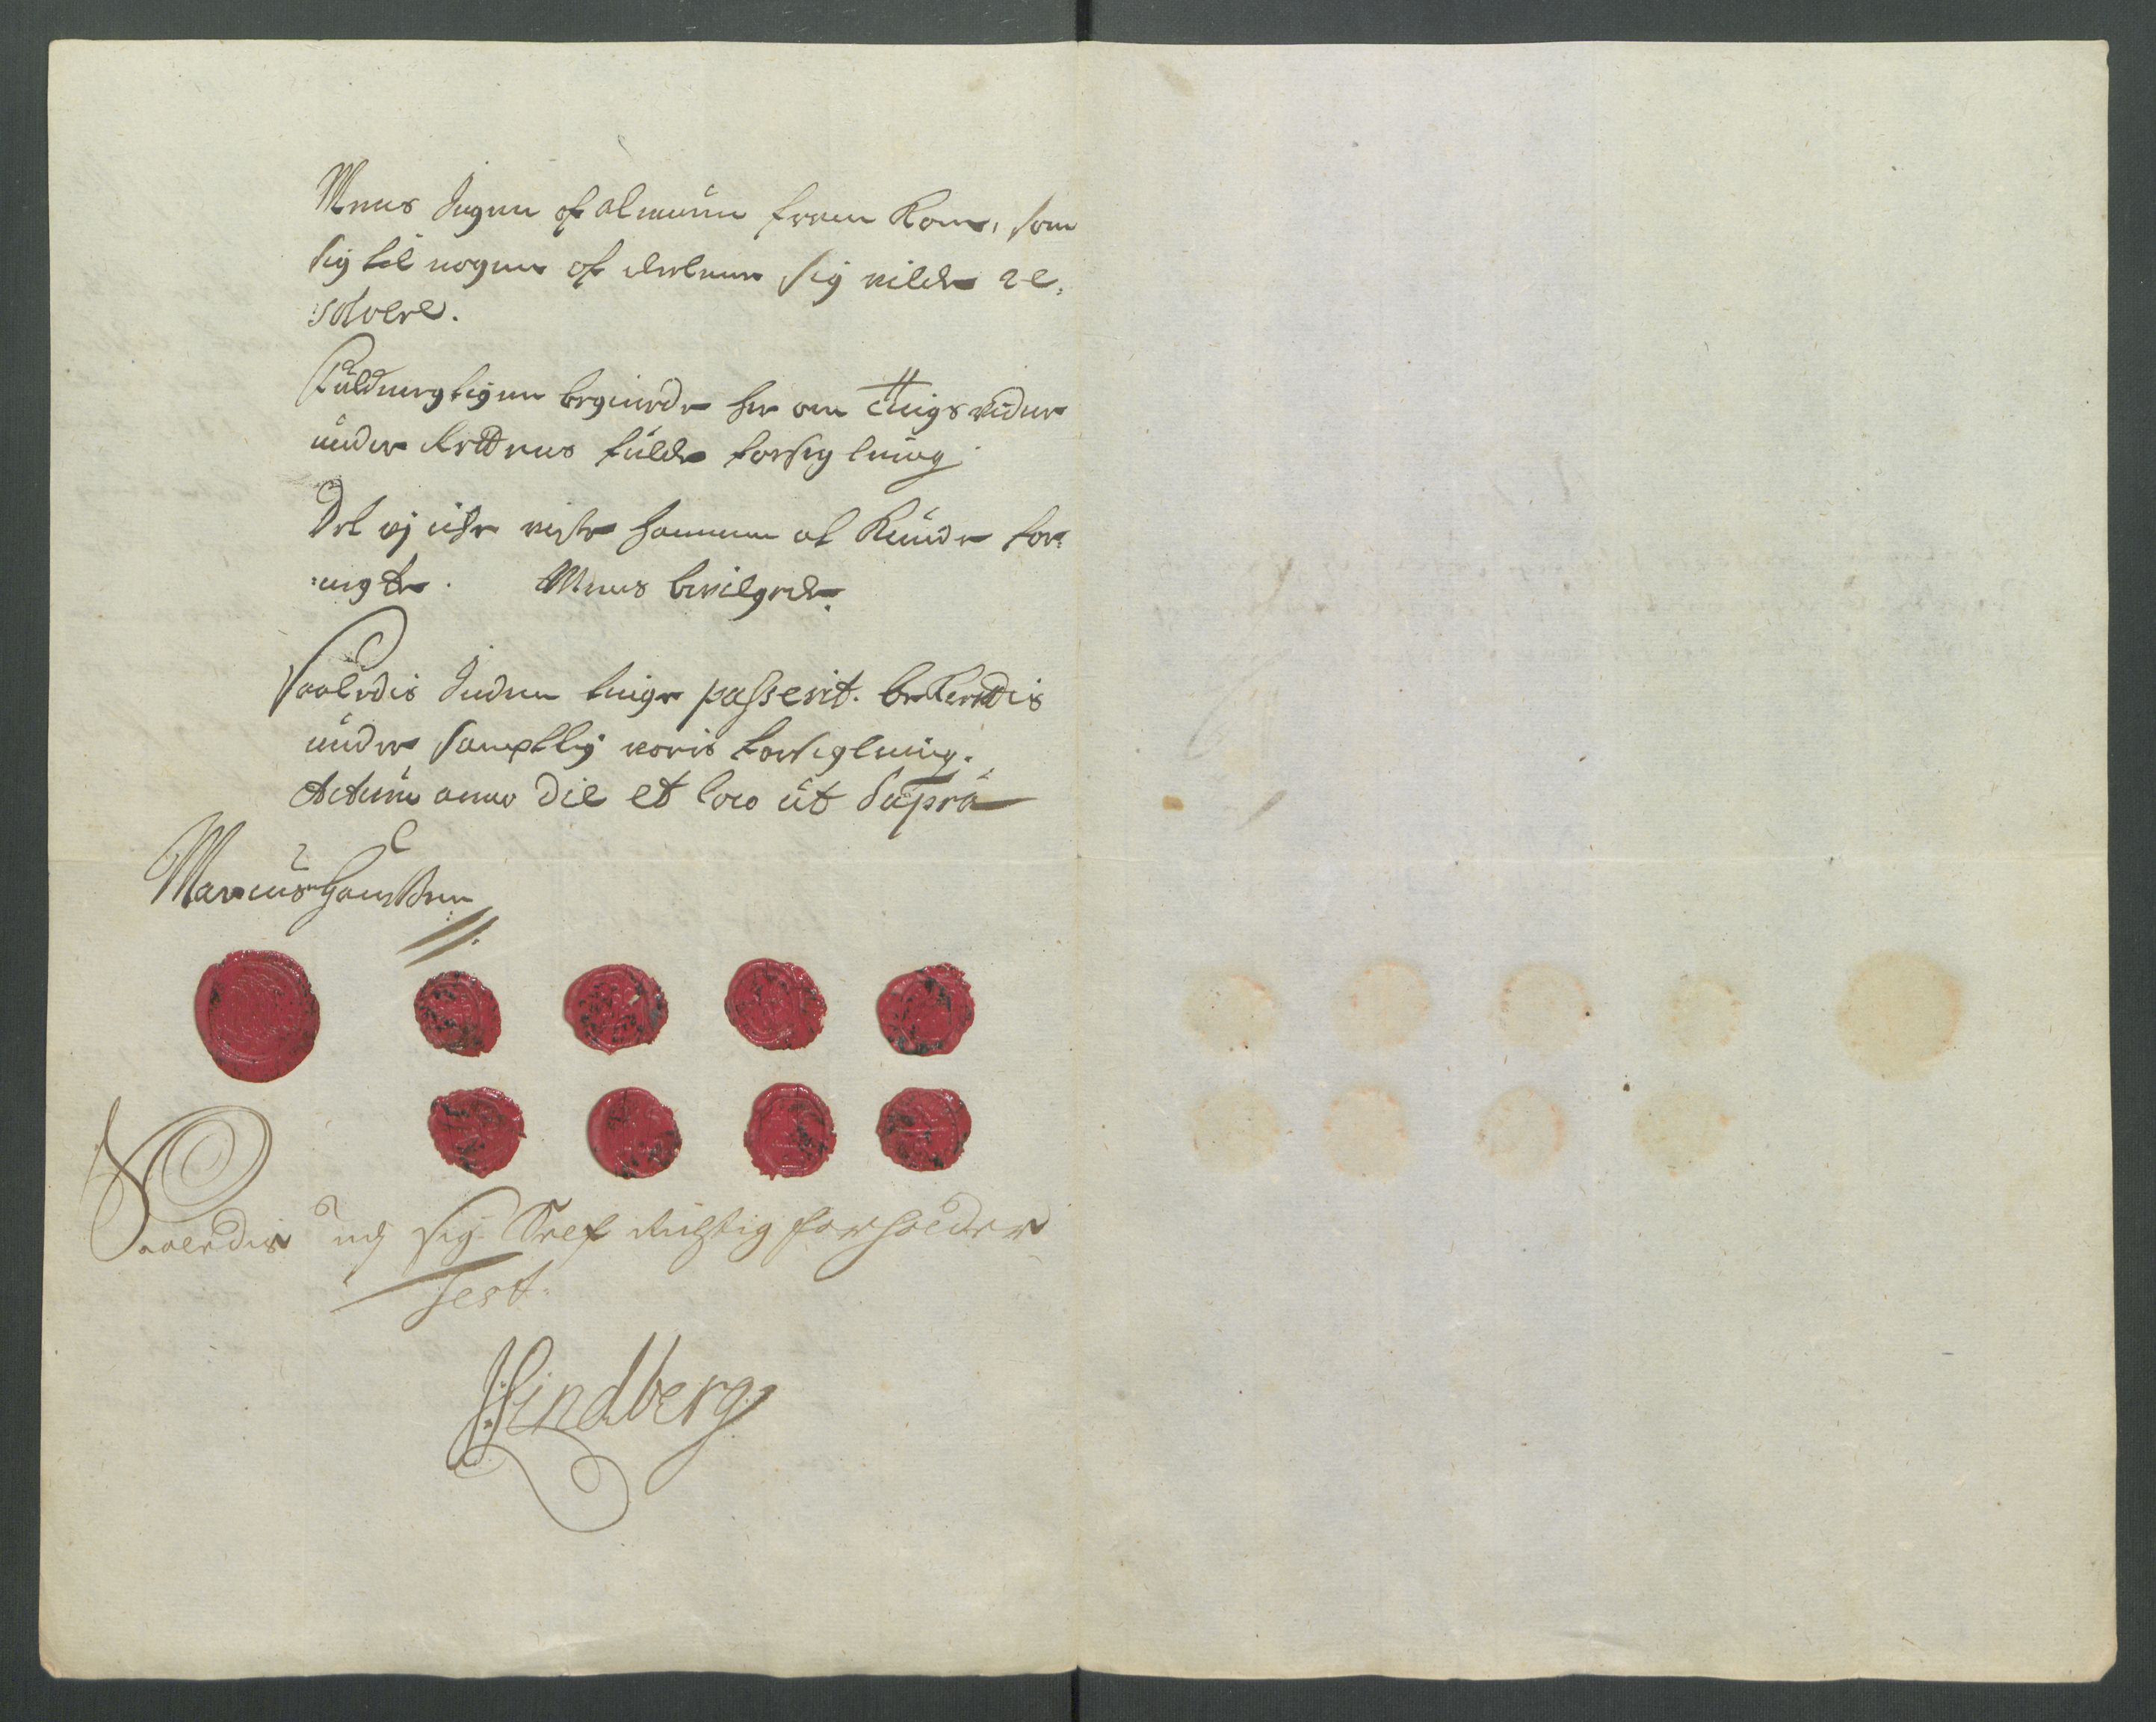 Mens Ingen af almuen frem kom, som
sig til nogen af delene sig vilde re:
:solvere.
Fuldmegtigen begierde her om tings vidne
under Rettens fulde forsegling
Det vj iche viste hannem at kunde for:
:negte. Mens bevilgede.
Saaledis Inden tinge passerit. bekreftis
under samptlig voris forsegling.
Actum anno die et loco ut supra
Marcus Hanssen
Saaledis sig Self rigtig forholder
Test.
Lindberg